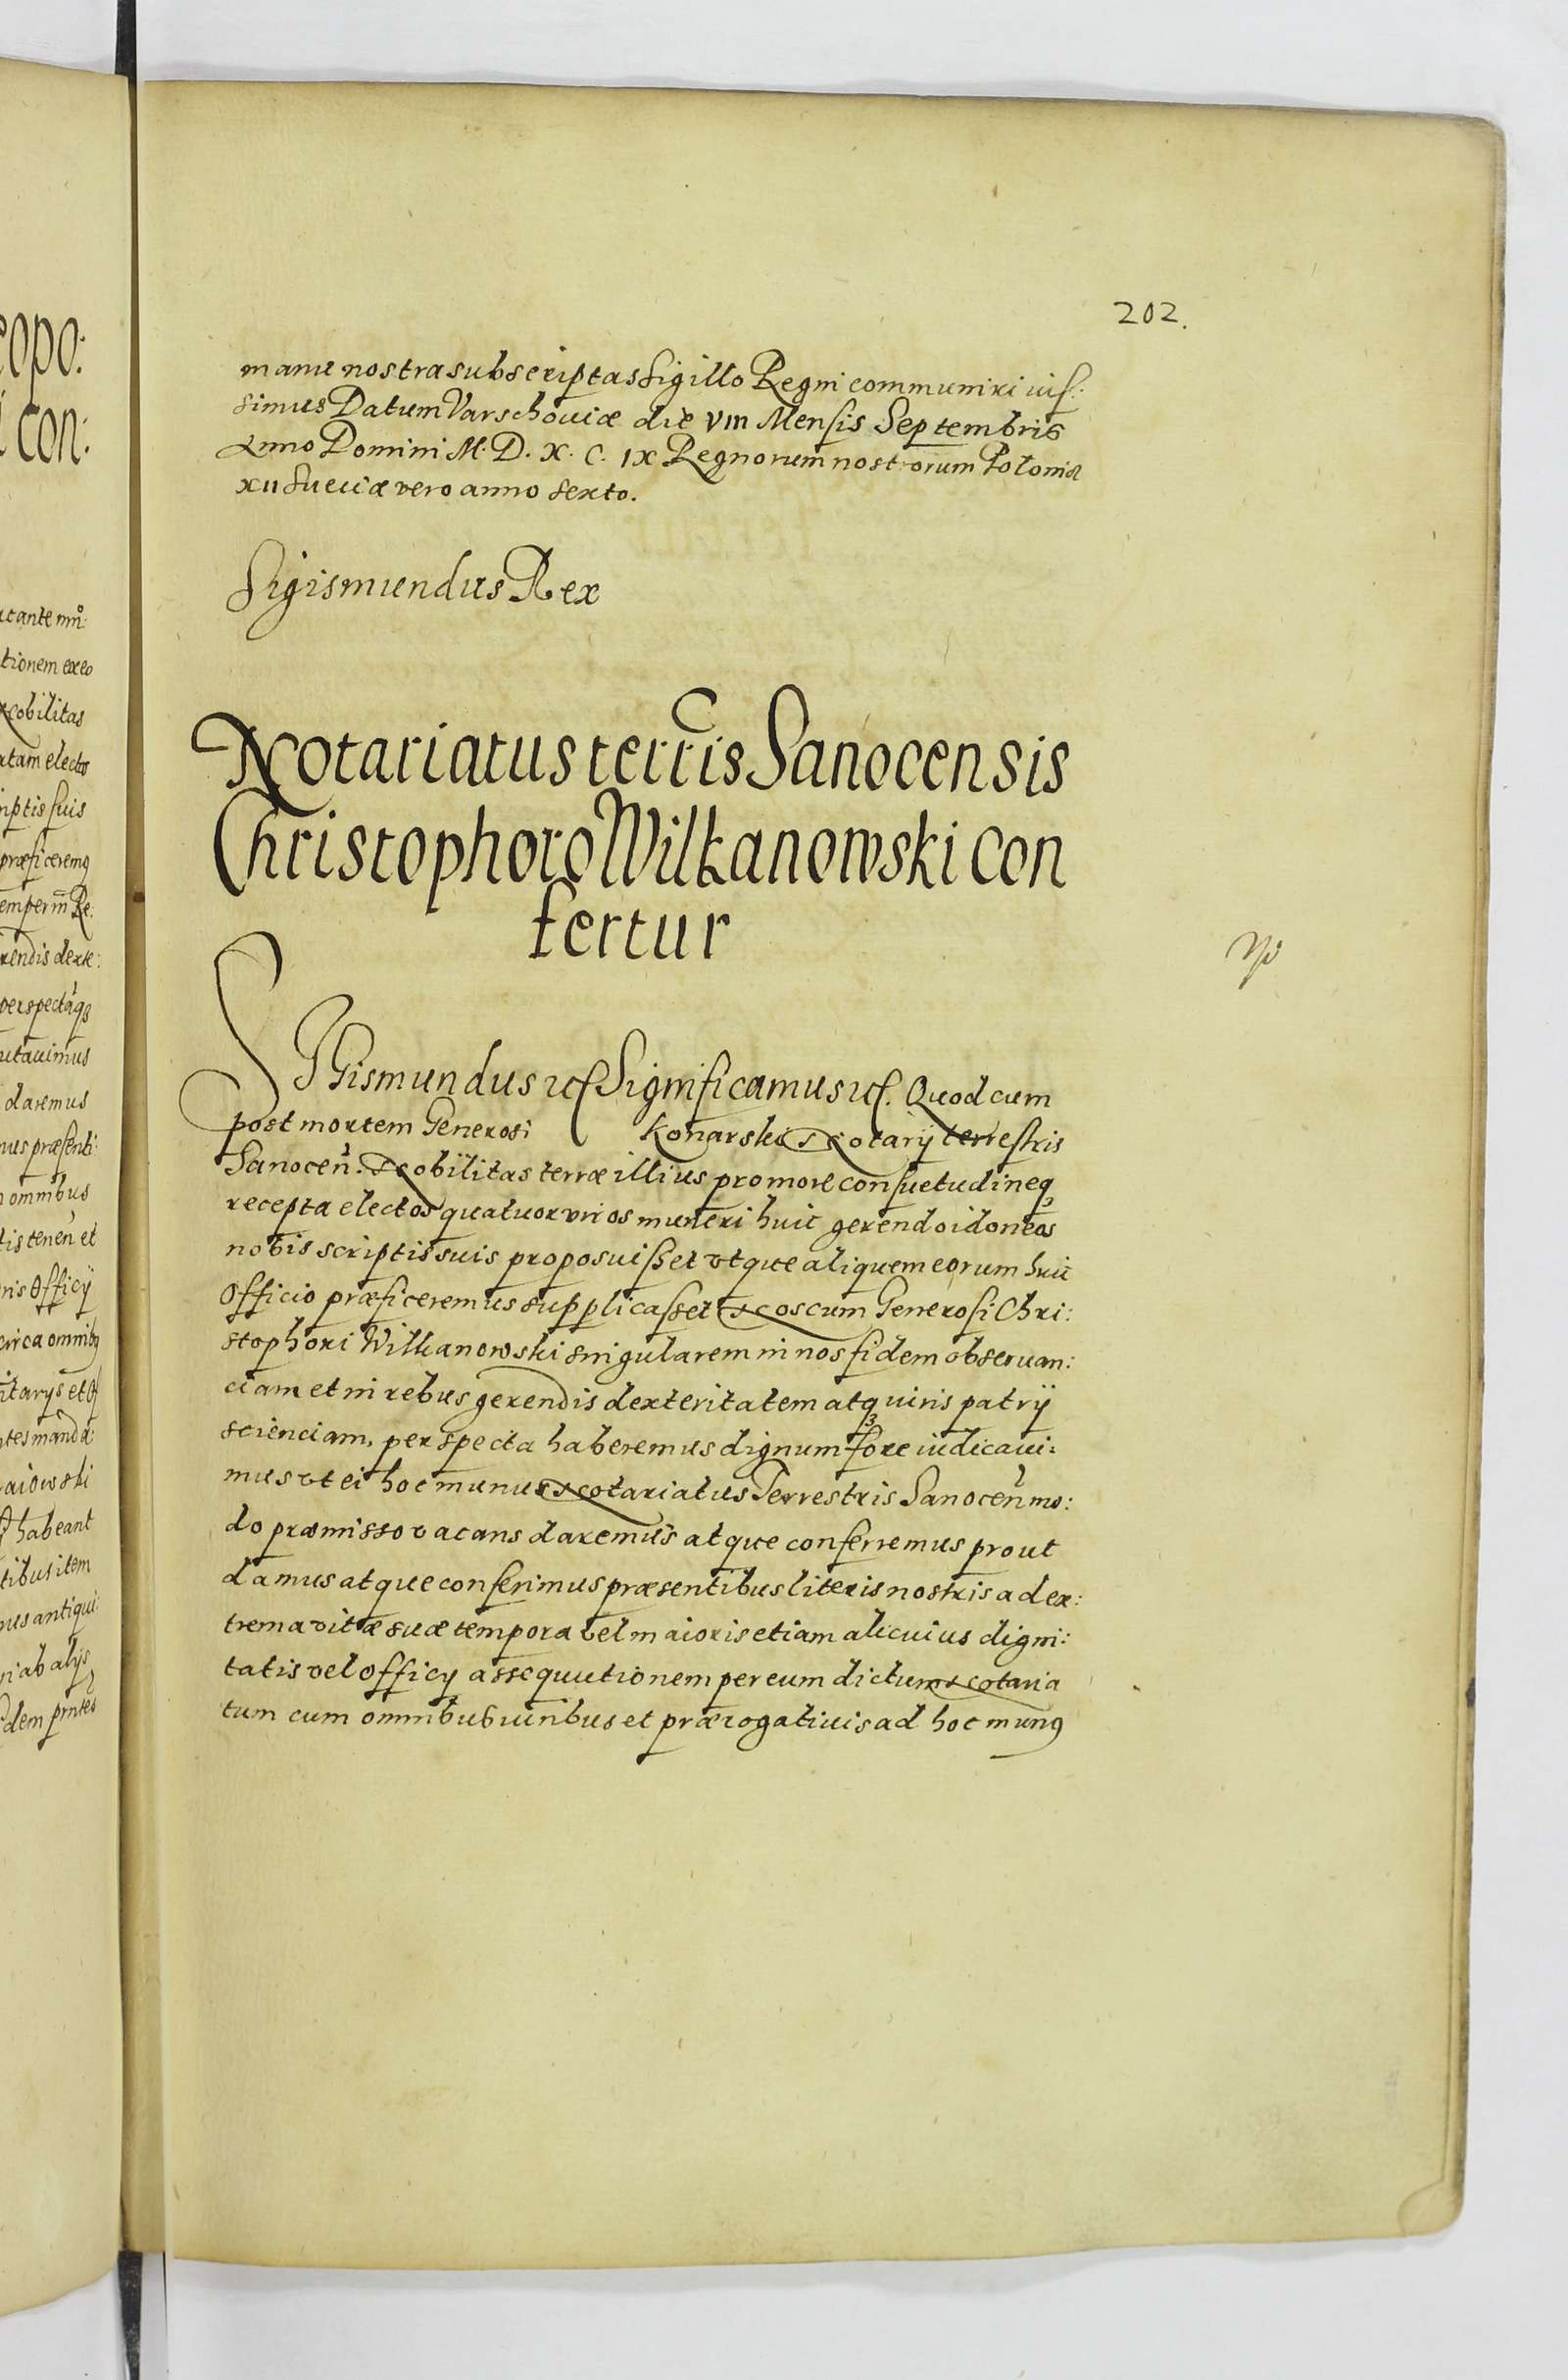 202.
manu nostra subscriptas Sigillo Regni communiri iuſ:
simus Datum Varschouiæ die VIII Menſis Septembris
Anno Domini M. D. X. C. IX Regnorum nostrorum Poloniæ
XII Sueciæ vero anno sexto.
Sigismundus Rex
Notariatus terrīs Sanocensis
Christophoro Wilkanowski con
fertur
SIGismundus ꝛcſ Significamus ꝛcſ. Quod cum
post mortem Generosi Konarski Notarij terreſtris
Sanoceñ. Nobilitas terræ illius pro more conſuetudineqꝫ
recepta electos quatuor viros muneri huic gerendo idoneos
nobis scriptis suis proposuiſset vtque aliquem eorum huic
Officio præficeremus supplicaſset Nos cum Generoſi Chri:
stophori Wilkanowski singularem in nos fidem obseruan:
ciam et in rebus gerendis dexteritatem atqꝫ iuris patrij
scienciam, perspecta haberemus dignum fore iudicaui:
mus vt ei hoc munus Notariatus Terrestris Sanoceñ mo:
do præmisso vacans daremus atque conferremus prout
damus atque conferimus præsentibus literis nostris ad ex:
trema vitæ suæ tempora vel maioris etiam alicuius digni:
tatis vel Officij assequutionem per eum dictum Notaria
tum cum omnibus iuribus et prærogatiuis ad hoc munꝰ
eopo:
i con:
acante
tionem ex eo
Nobilitas
atam electos
riptis ſuis
præficeremꝰ
Re:
rendis dexte:
perspectaqꝫ
utauimus
daremus
mus præſenti:
omnibus
tis teneñ et
ris Officij
circa omnibꝰ
itarys et
tes manda:
aiowski
habeant
tibus item
nus antiqui:
ri ab alijs
idem pr̃ntes